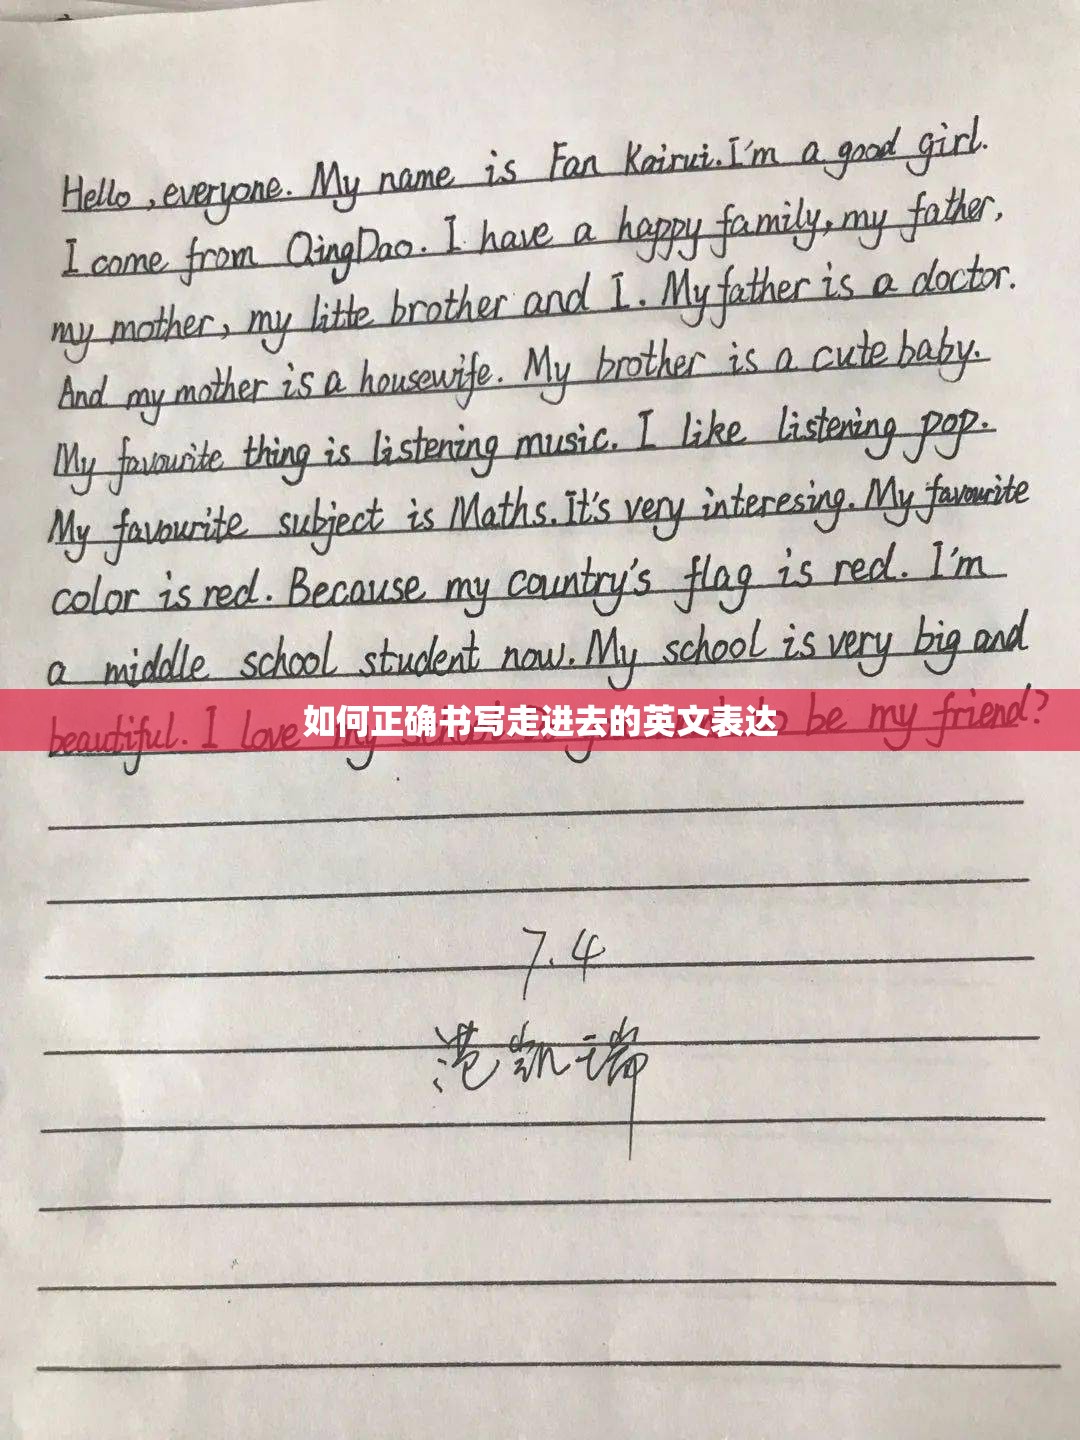 Hello, everyone. My name is Fan Kairui. I'm a good girl.
I come from QingDao. I have a happy family, my father,
my mother, my litte brother and I. My father is a doctor.
And my mother is a housewife. My brother is a cute baby.
My favourite thing is listening music. I like listening pop.
My favourite subject is Maths. It's very interesing. My favourite
color is red. Because my country's flag is red. I'm
a middle school student now. My school is very big and
beautiful. I love my school to be my friend?
如何正确书写走进去的英文表达
7.4
范凯瑞